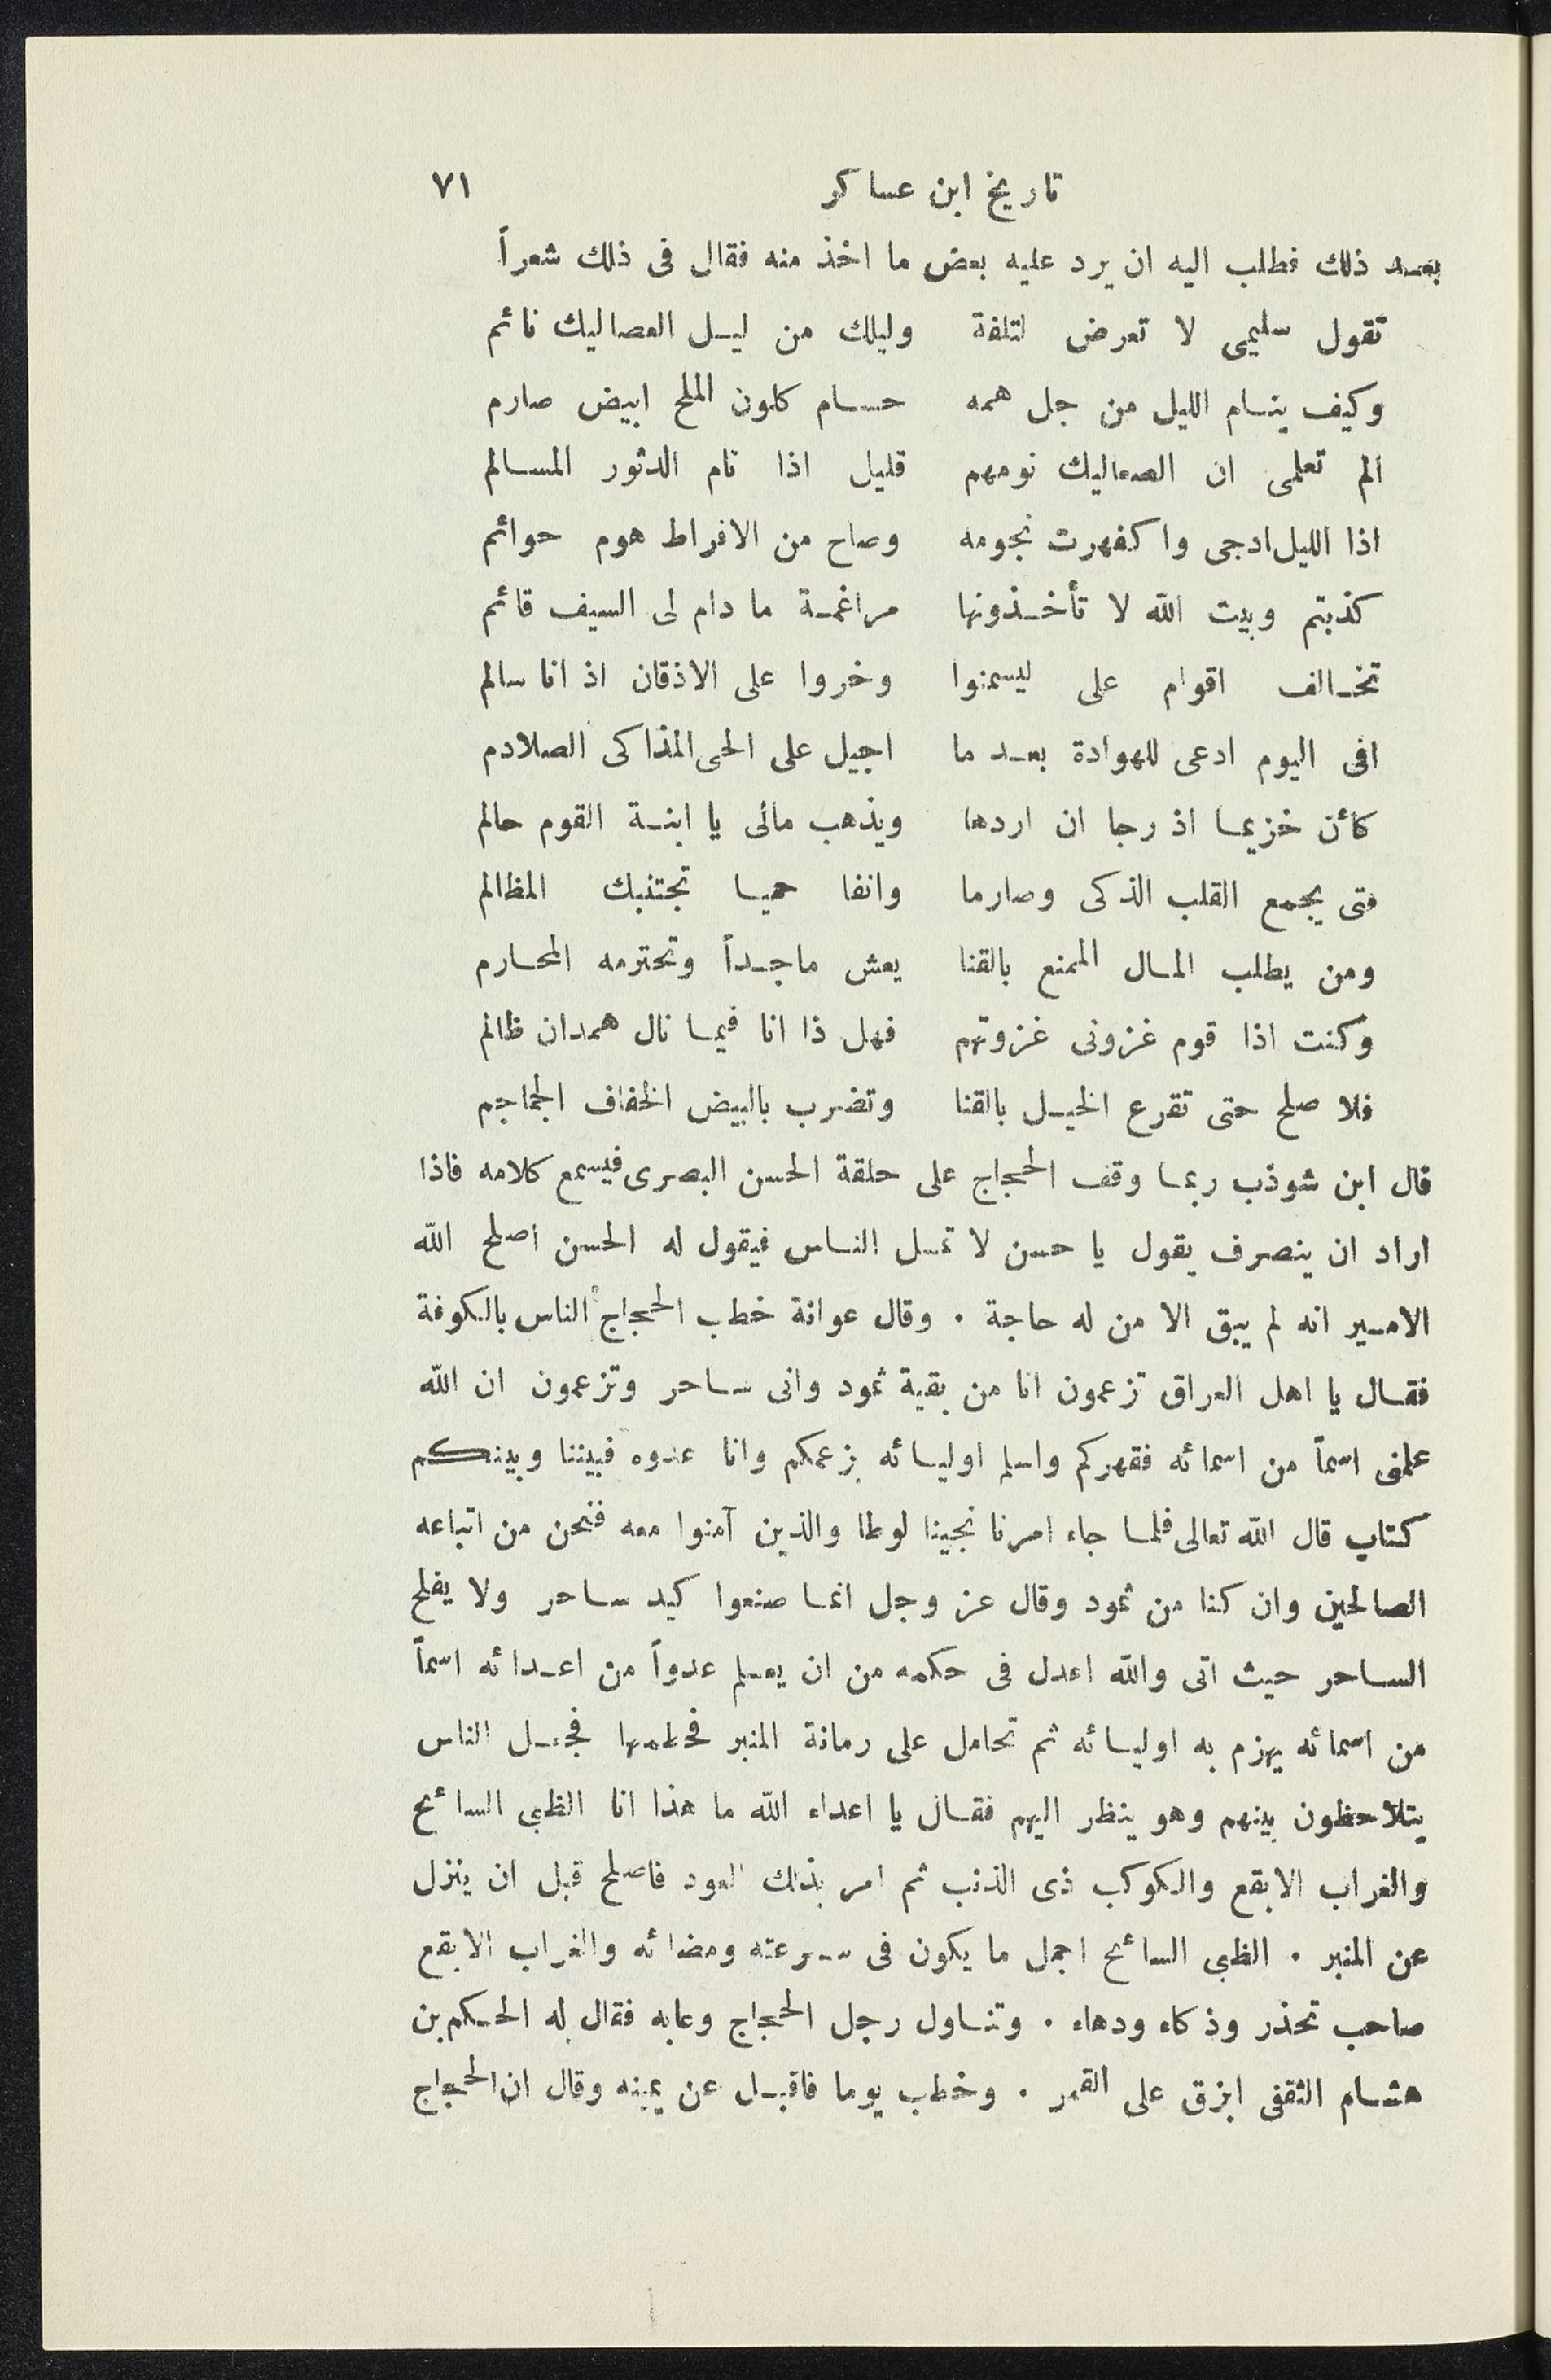 تاريخ ابن عساكر ٧١
بعد ذلك فطلب اليه ان يرد عليه بعض ما اخذ منه فقال فى ذلك شعراً
تقول سليمى لا تعرض لتلفة وليلك من ليل العصاليك نائم
وكيف ينام الليل من جل همه حسام كلون الملح ابيض صارم
الم تعلمى ان الصعاليك نومهم قليل اذا نام الدثور المسالم
اذا الليل ادجى واكفهرت نجومه وصاح من الافراط هوم حوائم
كذبتم وبيت الله لا تأخذونها مراغمة ما دام لى السيف قائم
تخالف اقوام على ليسمنوا وخروا على الاذقان اذ انا سالم
افى اليوم ادعى للهوادة بعد ما اجيل على الحى المذاكى الصلادم
كأن خزيما اذ رجا ان اردها ويذهب مالى يا ابنة القوم حالم
متى يجمع القلب الذكى وصارما وانفا حميا تجتنبك المظالم
ومن يطلب المال الممنع بالقنا يعش ماجداً وتحترمه المحارم
وكنت اذا قوم غزونى غزوتهم فهل ذا انا فيما نال همدان ظالم
فلا صلح حتى تقرع الخيل بالقنا وتضرب بالبيض الخفاف الجماجم
قال ابن شوذب ربما وقف الحجاج على حلقة الحسن البصرى فيسمع كلامه فاذا
اراد ان ينصرف يقول يا حسن لا تمل الناس فيقول له الحسن اصلح الله
الامير انه لم يبق الا من له حاجة . وقال عوانة خطب الحجاج الناس بالكوفة
فقال يا اهل العراق تزعمون انا من بقية ثمود وانى ساحر وتزعمون ان الله
علمنى اسماً من اسمائه فقهركم واسلم اوليائه بزعمكم وانا عدوه فبيننا وبينكم
كتاب قال الله تعالى فلما جاء امرنا نجينا لوطا والذين آمنوا معه فنحن من اتباعه
الصالحين وان كنا من ثمود وقال عز وجل انما صنعوا كيد ساحر ولا يفلح
الساحر حيث اتى والله اعدل فى حكمه من ان يعلم عدواً من اعدائه اسماً
من اسمائه يهزم به اوليائه ثم تحامل على رمانة المنبر فحطمها فجعل الناس
يتلاحظون بينهم وهو ينظر اليهم فقال يا اعداء الله ما هذا انا الظبى السائح
والغراب الابقع والكوكب ذى الذنب ثم امر بذلك العود فاصلح قبل ان ينزل
عن المنبر . الظبى السائح اجمل ما يكون فى سرعته ومضائه والغراب الابقع
صاحب تحذر وذكاء ودهاء . وتناول رجل الحجاج وعابه فقال له الحكم بن
هشام الثقفى ابزق على القمر . وخطب يوما فاقبل عن يمينه وقال ان الحجاج